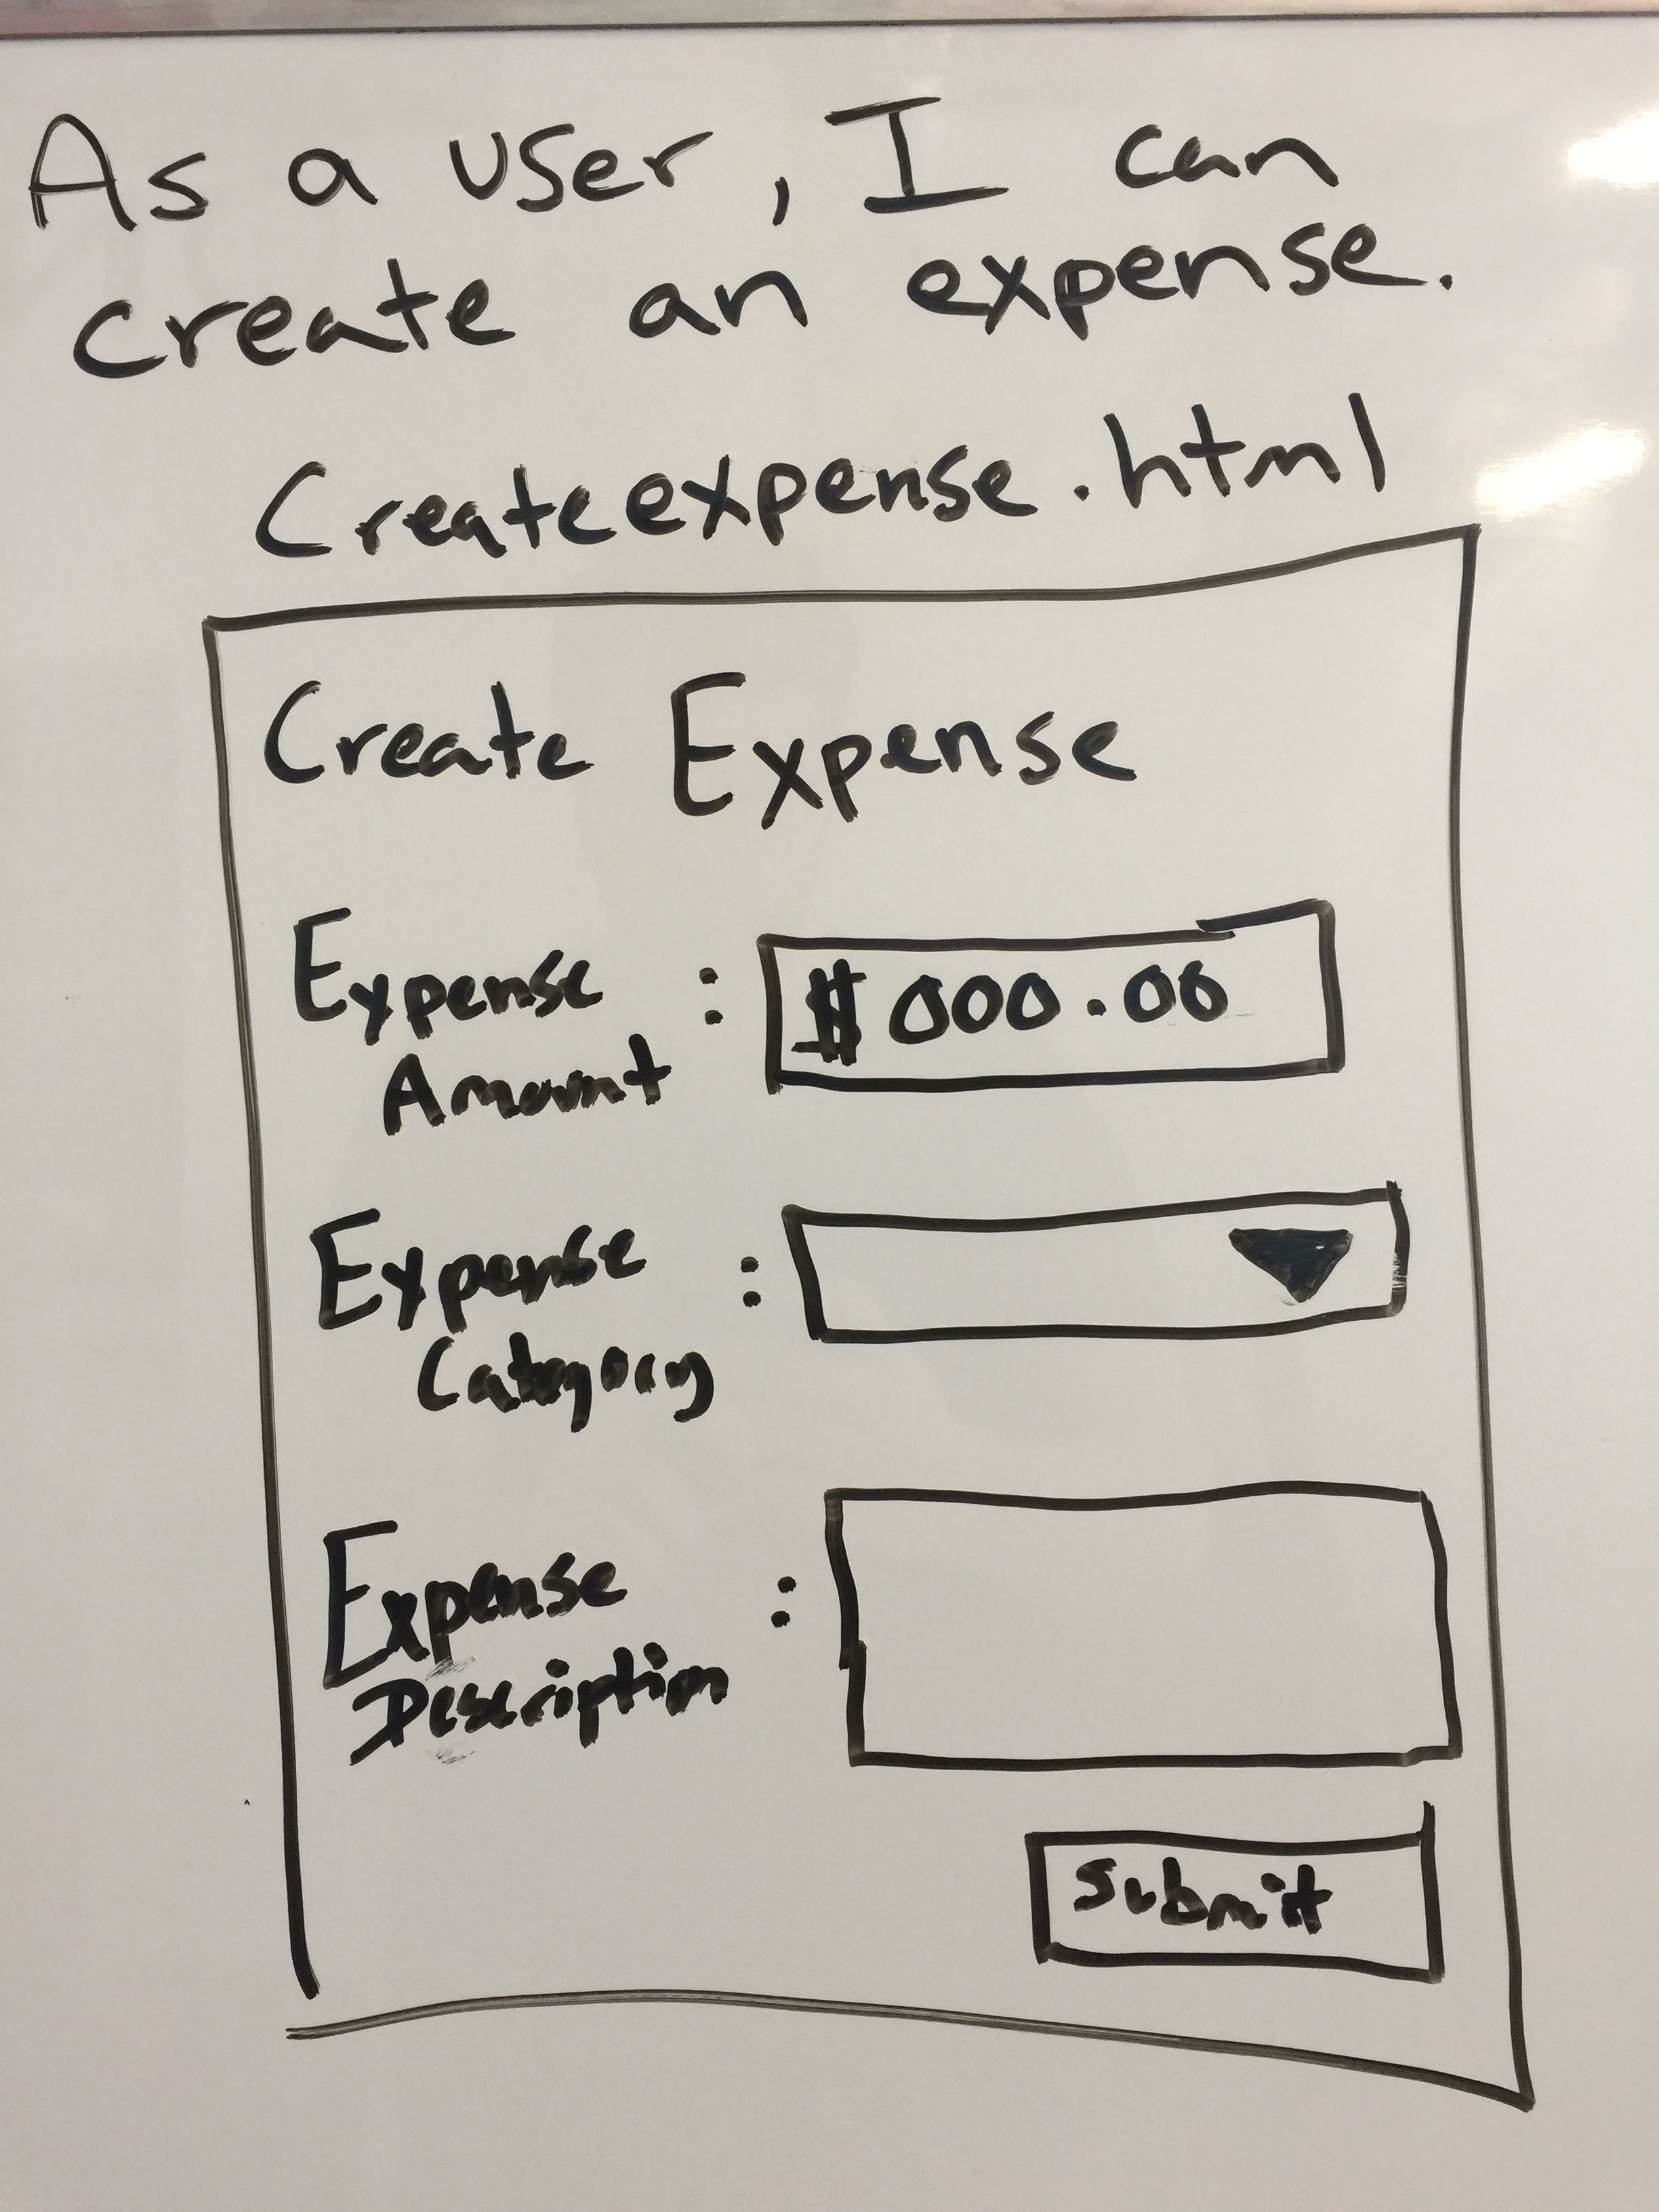 As a user, I can
create an expense.
Createexpense.html
Create Expense
Expense
Amount : $000.00
Expense
Category :
Expense
Description :
Submit